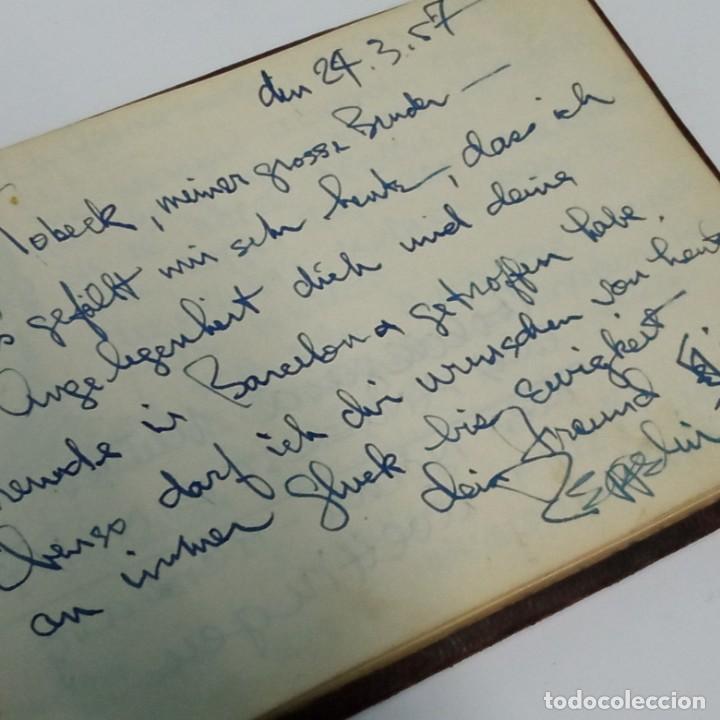 den 24.3.57
Tobeck, meiner grosser Bruder —
gefällt mir sehr heute, dass ich
Angelegenheit dich und deine
reunde in Barcelona getroffen habe.
benso darf ich dir wunschen von heute
an immer Gluck bis Ewigkeit —
dein Freund
Zeppelin
todocoleccion